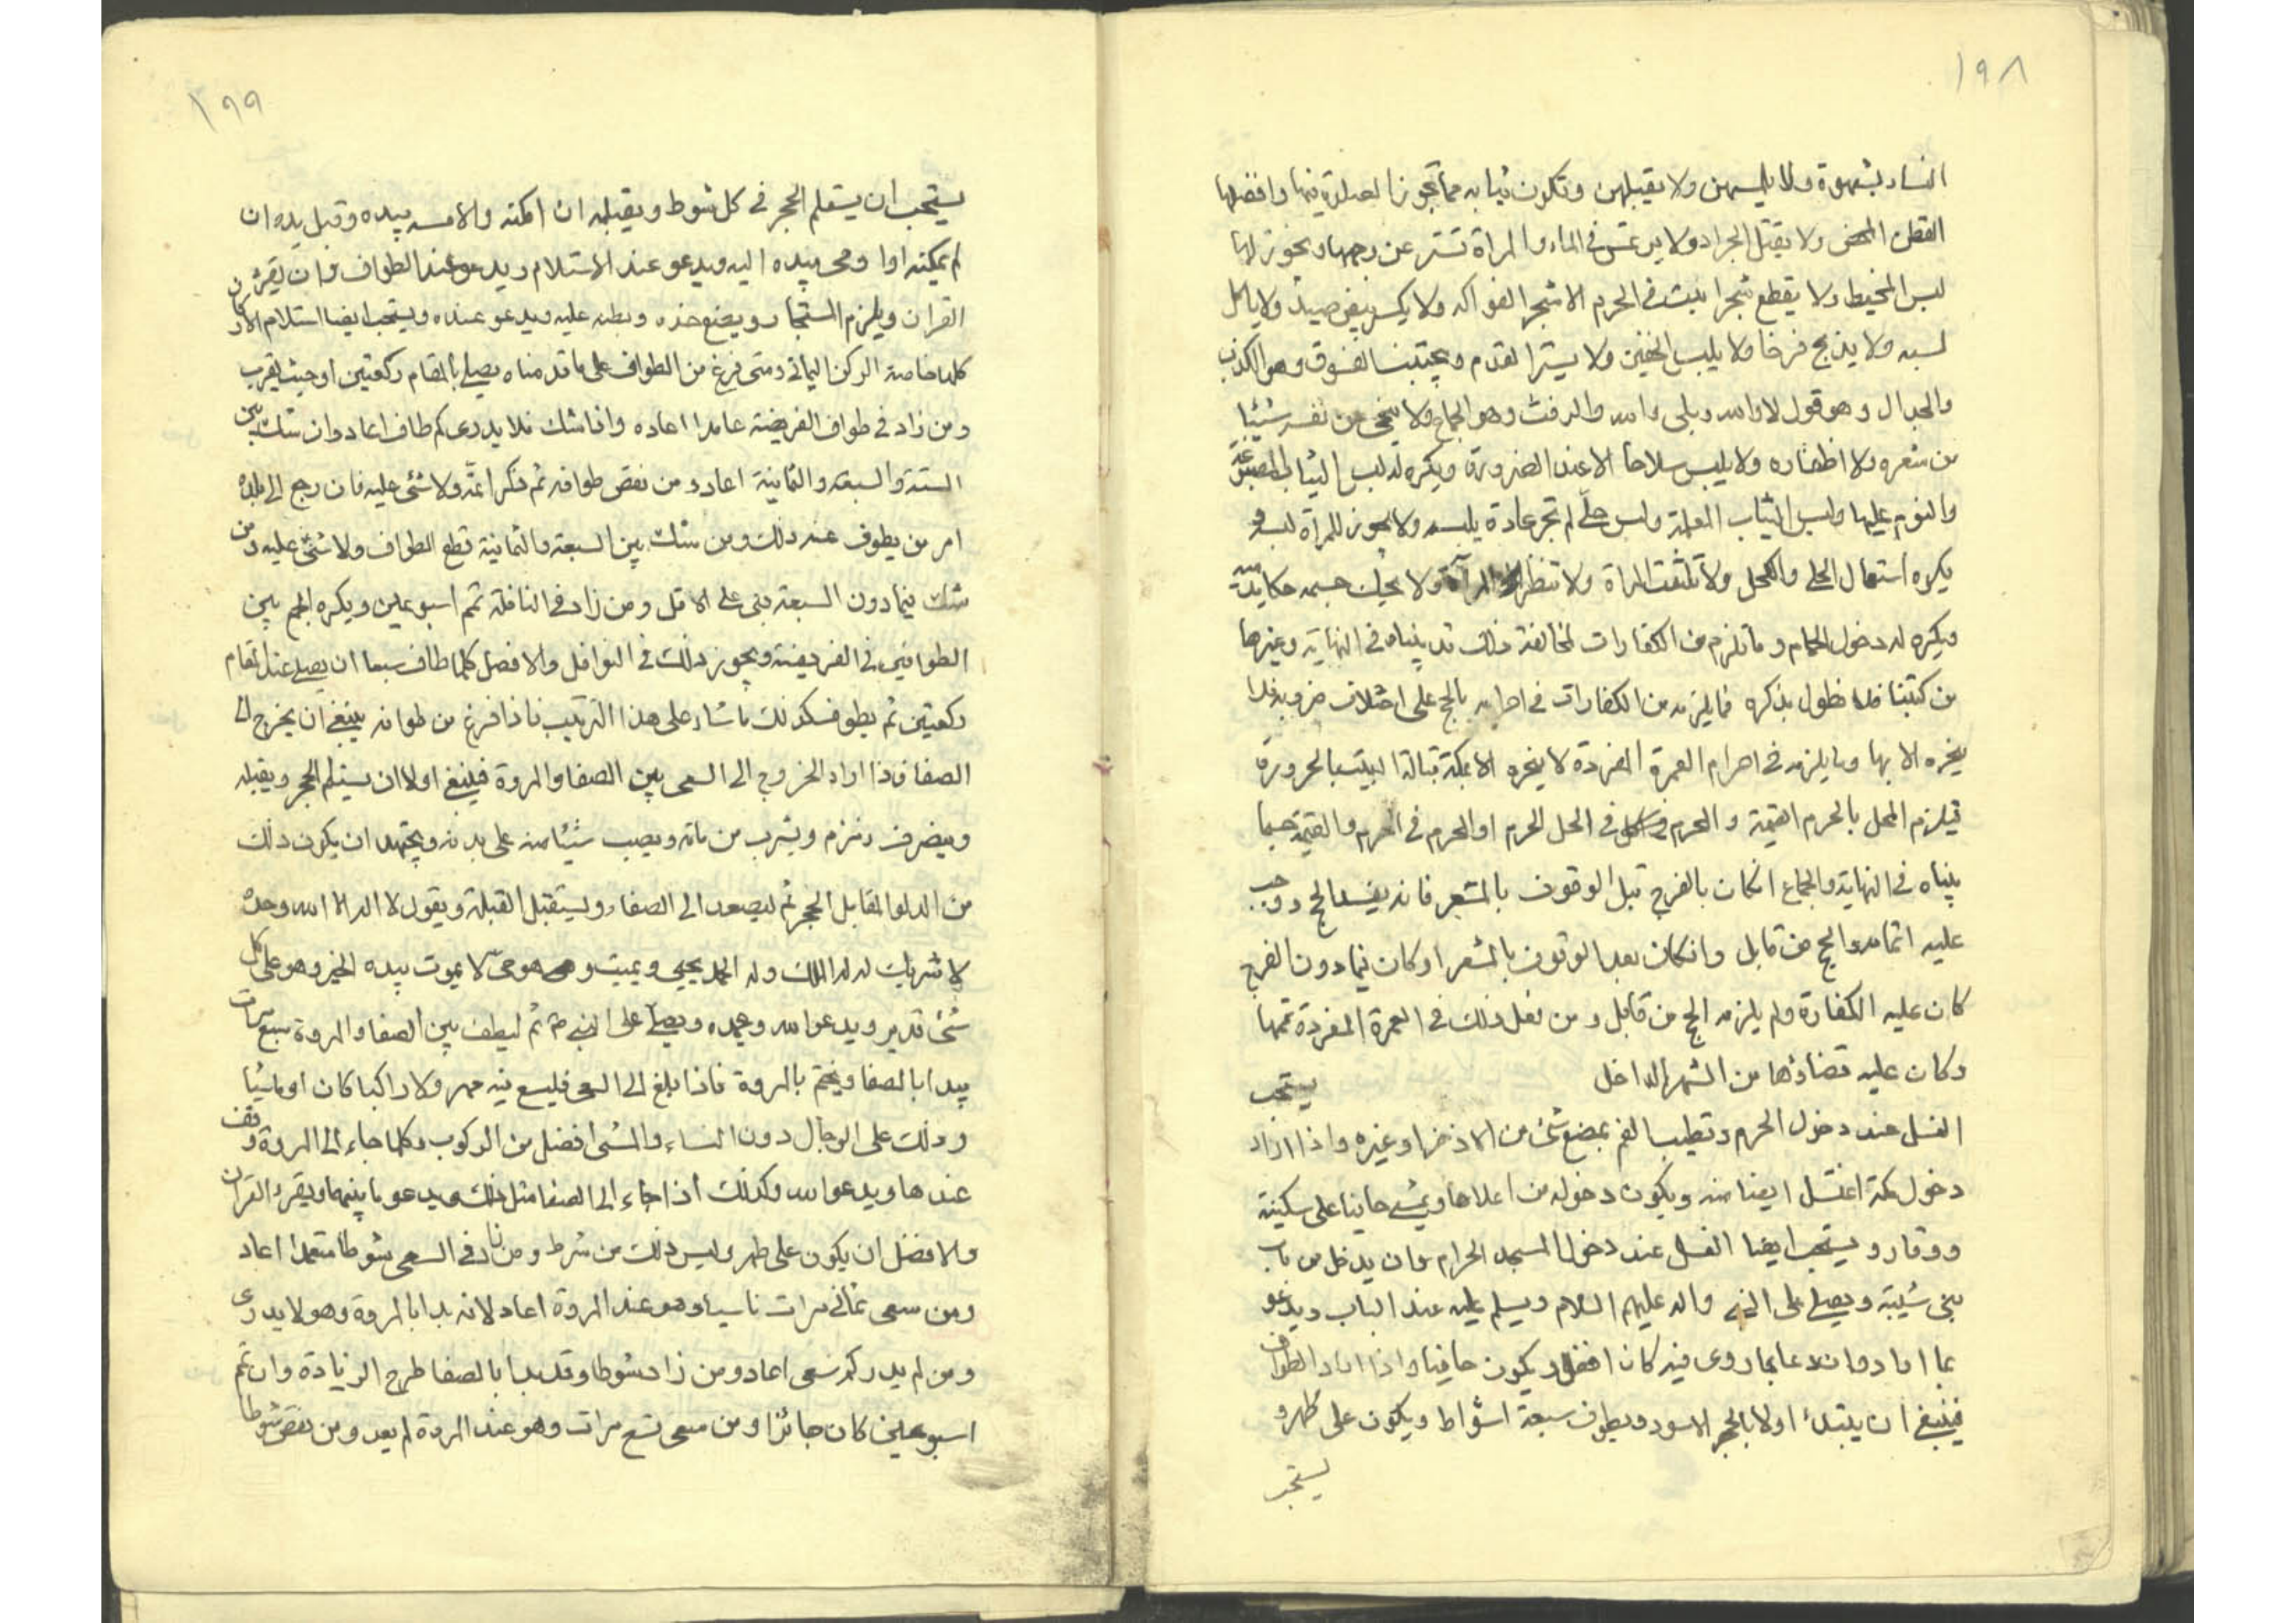 ١٩٨
النساء بشهوة ولا يلمسهن ولا يقبلهن وتكون ثيابه مما تجوز الصلوة فيها وافضلها
القطن المحض ولا يقتل الجراد ولا يرتمس في الماء والمراة تستر عن وجهها ويجوز لها
لبس المخيط ولا يقطع شجرا ينبت في الحرم الا شجر الفواكه ولا يكسر بيض صيد ولا ياكل
لسبه ولا يذبح فرخا ولا يلبس الخفين ولا يستر القدم ويجتنب الفسوق وهو الكذب
والجدال وهو قول لا والله وبلى والله والرفث وهو الجماع ولا ينحى من نفسه شيئا
من شعره ولا اظفاره ولا يلبس سلاحا الا عند الضرورة ويكره له لبس الثياب المصبغة
والنوم عليها ولبس الثياب المعلمة ولبس حلّى لم تجر عادة يلبسه ولا يجوز للمرأة لبسه و
يكره استعمال الحلى والكحل ولا تتنقب المراة ولا تنظر المرآة ولا يحك جسمه حكا يدميه
ويكره له دخول الحمام وما تلزم من الكفارات لمخالفة ذلك قد بيناه في النهاية وغيرها
من كتبنا فلا نطول بذكره فما يلزمه من الكفارات في احرامه بالحج على اختلاف ضروبه فلا
ينحره الا بها وما يلزمه في احرام العمرة المفردة لا ينحره الا بمكة قبالة البيت بالحزورة
فيلزم المحل بالحرم القيمة والمحرم في الحل الحرم او المحرم في الحرم والقيمة حسبما
بيناه في النهاية والجماع انكان بالفرج قبل الوقوف بالمشعر فانه يفسد الحج ووجب
عليه اتمامه والحج من قابل وانكان بعد الوقوف بالمشعر او كان فيما دون الفرج
كان عليه الكفارة ولم يلزمه الحج من قابل ومن فعل ذلك في العمرة المفردة تممها
وكان عليه قضاؤها من الشهر الداخل يستحب
الغسل عند دخول الحرم وتطيب الفم بمضغ شئ من الاذخر او غيره واذا اراد
دخول مكة اغتسل ايضا منه ويكون دخوله من اعلاها ويمشى حافيا على سكينة
ووقار ويستحب ايضا الغسل عند دخول المسجد الحرام وان يدخل من باب
بنى شيبة ويصلى على النبي واله عليهم السلام ويسلم عليه عند الباب ويدعو
بما اراد وان دعا بما روى فيه كان افضل ويكون حافيا واذا اراد الطواف
فينبغى ان يبتدئ اولا بالحجر الاسود ويطوف سبعة اشواط ويكون على طهر و
يستحب
١٩٩
يستحب ان يستلم الحجر في كل شوط ويقبله ان امكنه والا مسه بيده وقبل يده ان
لم يمكنه اوما ومى بيده اليه ويدعو عند الاستلام ويدعو عند الطواف وان يقرئ
القران ويلزم المستجار ويضع خده وبطنه عليه ويدعو عنده ويستحب ايضا استلام الاركان
كلها خاصة الركن اليمانى ومتى فرغ من الطواف على ما قدمناه يصلى بالمقام ركعتين او حيث يقرب
ومن زاد في طواف الفريضة عامدا اعاده واذا شك فلا يدرى كم طاف اعاد وان شك بين
الستة والسبعة والثمانية اعاد ومن نقص طوافه ثم ذكر اتمّه ولا شئ عليه فان رجع الى بلده
امر من يطوف عنه ذلك ومن شك بين السبعة والثمانية قطع الطواف ولا شئ عليه ومن
شك فيما دون السبعة بنى على الاقل ومن زاد في النافلة تمم اسبوعين ويكره الجمع بين
الطوافين في الفريضة ويجوز ذلك في النوافل والافضل كلما طاف سبعا ان يصلى عند المقام
ركعتين ثم يطوف كذلك ما شاء على هذا الترتيب فاذا فرغ من طوافه ينبغى ان يخرج الى
الصفا فاذا اراد الخروج الى السعى بين الصفا والمروة فينبغى اولا ان يستلم الحجر ويقبله
وينصرف زمزم ويشرب من مائه ويصب شيئا منه على بدنه ويجتهد ان يكون ذلك
من الدلو المقابل الحجر ثم ليصعد الى الصفا ويستقبل القبلة ويقول لا اله الا الله وحده
لا شريك له له الملك وله الحمد يحيى ويميت وهو هو حىّ لا يموت بيده الخير وهو على كل
شئ قدير ويدعو الله وحمده ويصلى على النبي ص ثم ليطف بين الصفا والمروة سبع مرات
يبدا بالصفا ويختم بالمروة فاذا بلغ الى السعى فليسع فيه مهرولا راكبا كان او ماشيا
وذلك على الرجال دون النساء والمشى افضل من الركوب وكلما جاء الى المروة وقف
عندها ويدعو الله وكذلك اذا جاء الى الصفا مثل ذلك ويدعو ما بينهما ويقرء القران
والافضل ان يكون على طهر وليس ذلك من شرط ومن زاد في السعى شوطا متعمدا اعاد
ومن سعى ثمانى مرات ناسيا وهو عند المروة اعاد لانه بدا بالمروة وهو لا يدرى
ومن لم يدر كم سعى اعاد ومن زاد شوطا وقد بدا بالصفا طرح الزيادة وان تمم
اسبوعين كان جائزا ومن سعى تسع مرات وهو عند المروة لم يعد ومن نقص شوطا